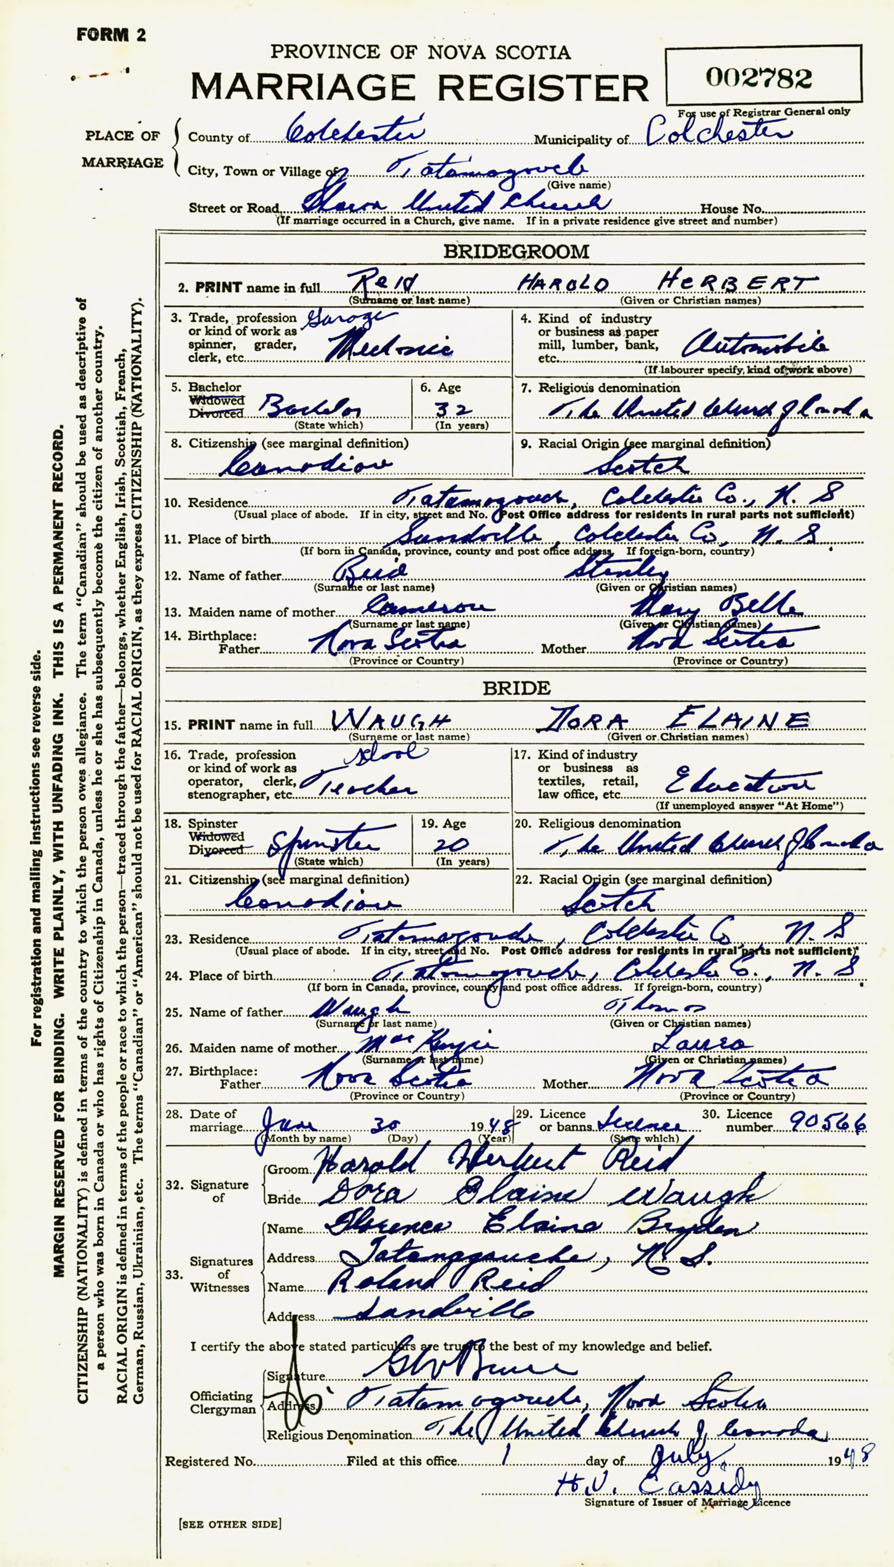 FORM 2
PROVINCE OF NOVA SCOTIA
MARRIAGE REGISTER
002782
For use of Registrar General only
PLACE OF MARRIAGE
County of Colchester Municipality of Colchester
City, Town or Village of Tatamagouche
(Give name)
Street or Road Sharon United Church House No.
(If marriage occurred in a Church, give name. If in a private residence give street and number)
BRIDEGROOM
2. PRINT name in full REID HAROLD HERBERT
(Surname or last name) (Given or Christian names)
3. Trade, profession or kind of work as spinner, grader, clerk, etc. Garage Mechanic
4. Kind of industry or business as paper mill, lumber, bank, etc. Automobile
(If labourer specify, kind of work above)
5. Bachelor Widowed Divorced Bachelor
(State which)
6. Age 32
(In years)
7. Religious denomination
The United Church of Canada
8. Citizenship (see marginal definition)
Canadian
9. Racial Origin (see marginal definition)
Scotch
10. Residence Tatamagouche, Colchester Co., N. S
(Usual place of abode. If in city, street and No. Post Office address for residents in rural parts not sufficient)
11. Place of birth Sandville, Colchester Co, N. S.
(If born in Canada, province, county and post office address. If foreign-born, country)
12. Name of father Reid Stanley
(Surname or last name) (Given or Christian names)
13. Maiden name of mother Cameron Mary Belle
(Surname or last name) (Given or Christian names)
14. Birthplace:
Father Nova Scotia Mother Nova Scotia
(Province or Country) (Province or Country)
BRIDE
15. PRINT name in full WAUGH DORA ELAINE
(Surname or last name) (Given or Christian names)
16. Trade, profession or kind of work as operator, clerk, stenographer, etc. School Teacher
17. Kind of industry or business as textiles, retail, law office, etc. Education
(If unemployed answer "At Home")
18. Spinster Widowed Divorced Spinster
(State which)
19. Age 20
(In years)
20. Religious denomination
The United Church of Canada
21. Citizenship (see marginal definition)
Canadian
22. Racial Origin (see marginal definition)
Scotch
23. Residence Tatamagouche, Colchester Co N. S
(Usual place of abode. If in city, street and No. Post Office address for residents in rural parts not sufficient)
24. Place of birth Tatamagouche, Colchester Co., N. S.
(If born in Canada, province, county and post office address. If foreign-born, country)
25. Name of father Waugh Thomas
(Surname or last name) (Given or Christian names)
26. Maiden name of mother MacKenzie Laura
(Surname or last name) (Given or Christian names)
27. Birthplace:
Father Nova Scotia Mother Nova Scotia
(Province or Country) (Province or Country)
28. Date of marriage June 30 1948
(Month by name) (Day) (Year)
29. Licence or banns License
(State which)
30. Licence number 90566
32. Signature of
Groom Harold Herbert Reid
Bride Dora Elaine Waugh
33. Signatures of Witnesses
Name Florence Elaine Bryden
Address Tatamagouche, N. S.
Name Roland Reid
Address Sandville
I certify the above stated particulars are true to the best of my knowledge and belief.
Officiating Clergyman
Signature
Address Tatamagouche, Nova Scotia
Religious Denomination The United Church of Canada
Registered No. Filed at this office 1 day of July, 1948
H. V. Cassidy
Signature of Issuer of Marriage Licence
[SEE OTHER SIDE]
For registration and mailing instructions see reverse side.
MARGIN RESERVED FOR BINDING. WRITE PLAINLY, WITH UNFADING INK. THIS IS A PERMANENT RECORD.
CITIZENSHIP (NATIONALITY) is defined in terms of the country to which the person owes allegiance. The term "Canadian" should be used as descriptive of
a person who was born in Canada or who has rights of Citizenship in Canada, unless he or she has subsequently become the citizen of another country.
RACIAL ORIGIN is defined in terms of the people or race to which the person—traced through the father—belongs, whether English, Irish, Scottish, French,
German, Russian, Ukrainian, etc. The terms "Canadian" or "American" should not be used for RACIAL ORIGIN, as they express CITIZENSHIP (NATIONALITY).